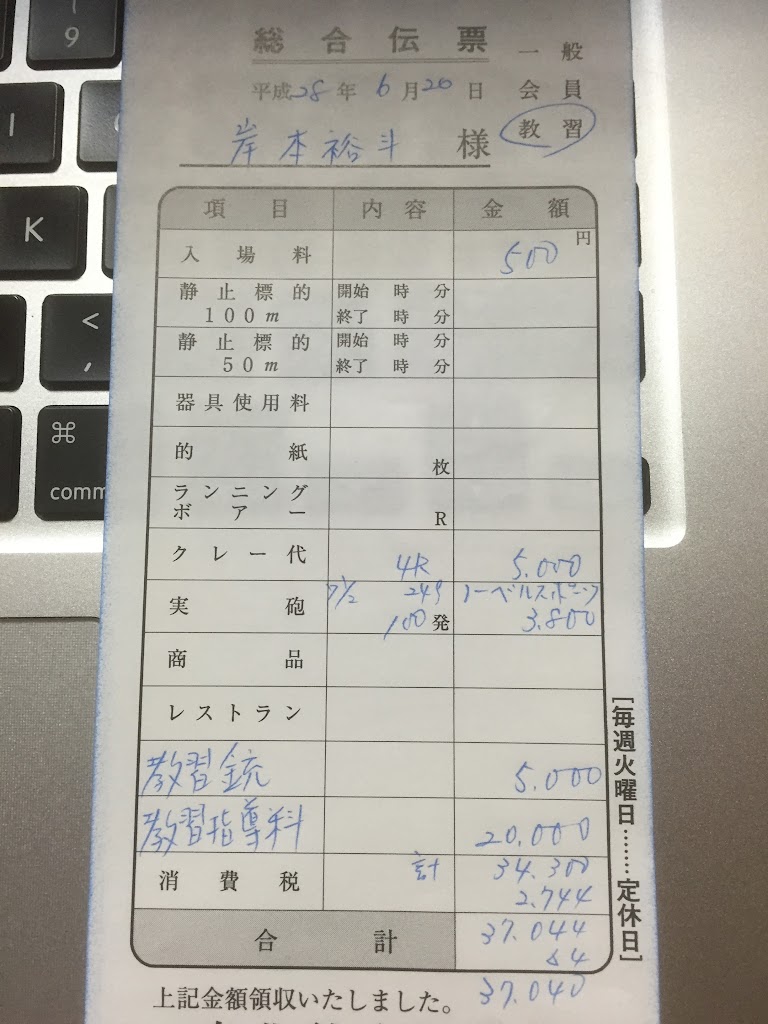 総合伝票
一般
平成28年6月20日
会員
岸本裕斗 様
教習
項目 内容 金額
入場料 500円
静止標的100m 開始 時 分
終了 時 分
静止標的50m 開始 時 分
終了 時 分
器具使用料
的紙 枚
ランニングボアー R
クレー代 4R 5.000
実砲 7 1/2 24g ノーベルスポーツ
100発 3.800
商品
レストラン
教習銃 5.000
教習指導料 20.000
計 34.300
消費税 2.744
合計 37.044
△4
37.040
上記金額領収いたしました。
[毎週火曜日……定休日]
9
I
K
<
,
⌘
comm